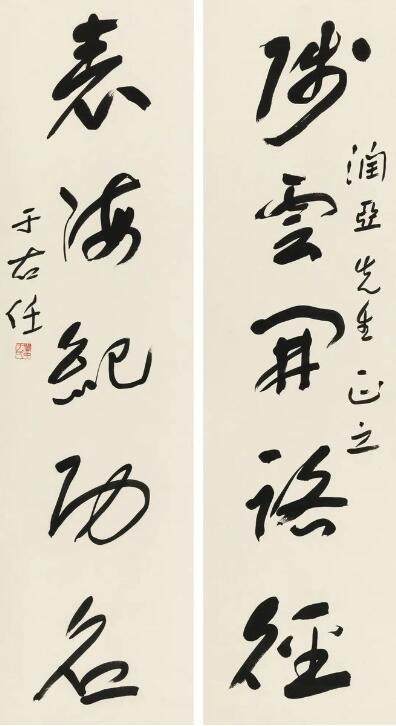 潤亞先生正之
陟雲開路徑
表海紀功名
于右任